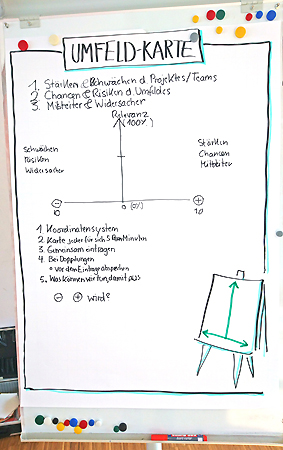 UMFELD-KARTE
1. Stärken & Schwächen d. Projektes/Teams
2. Chancen & Risiken d. Umfeldes
3. Mitstreiter & Widersacher
Relevanz
(100%)
Schwächen
Risiken
Widersacher
Stärken
Chancen
Mitstreiter
⊖
10
0 (0%)
⊕
10
1. Koordinatensystem
2. Karte jeder für sich 5 Minuten
3. Gemeinsam eintragen
4. Bei Dopplungen
vor dem Eintrag absprechen
5. Was können wir tun, damit aus
⊖ ⊕ wird?